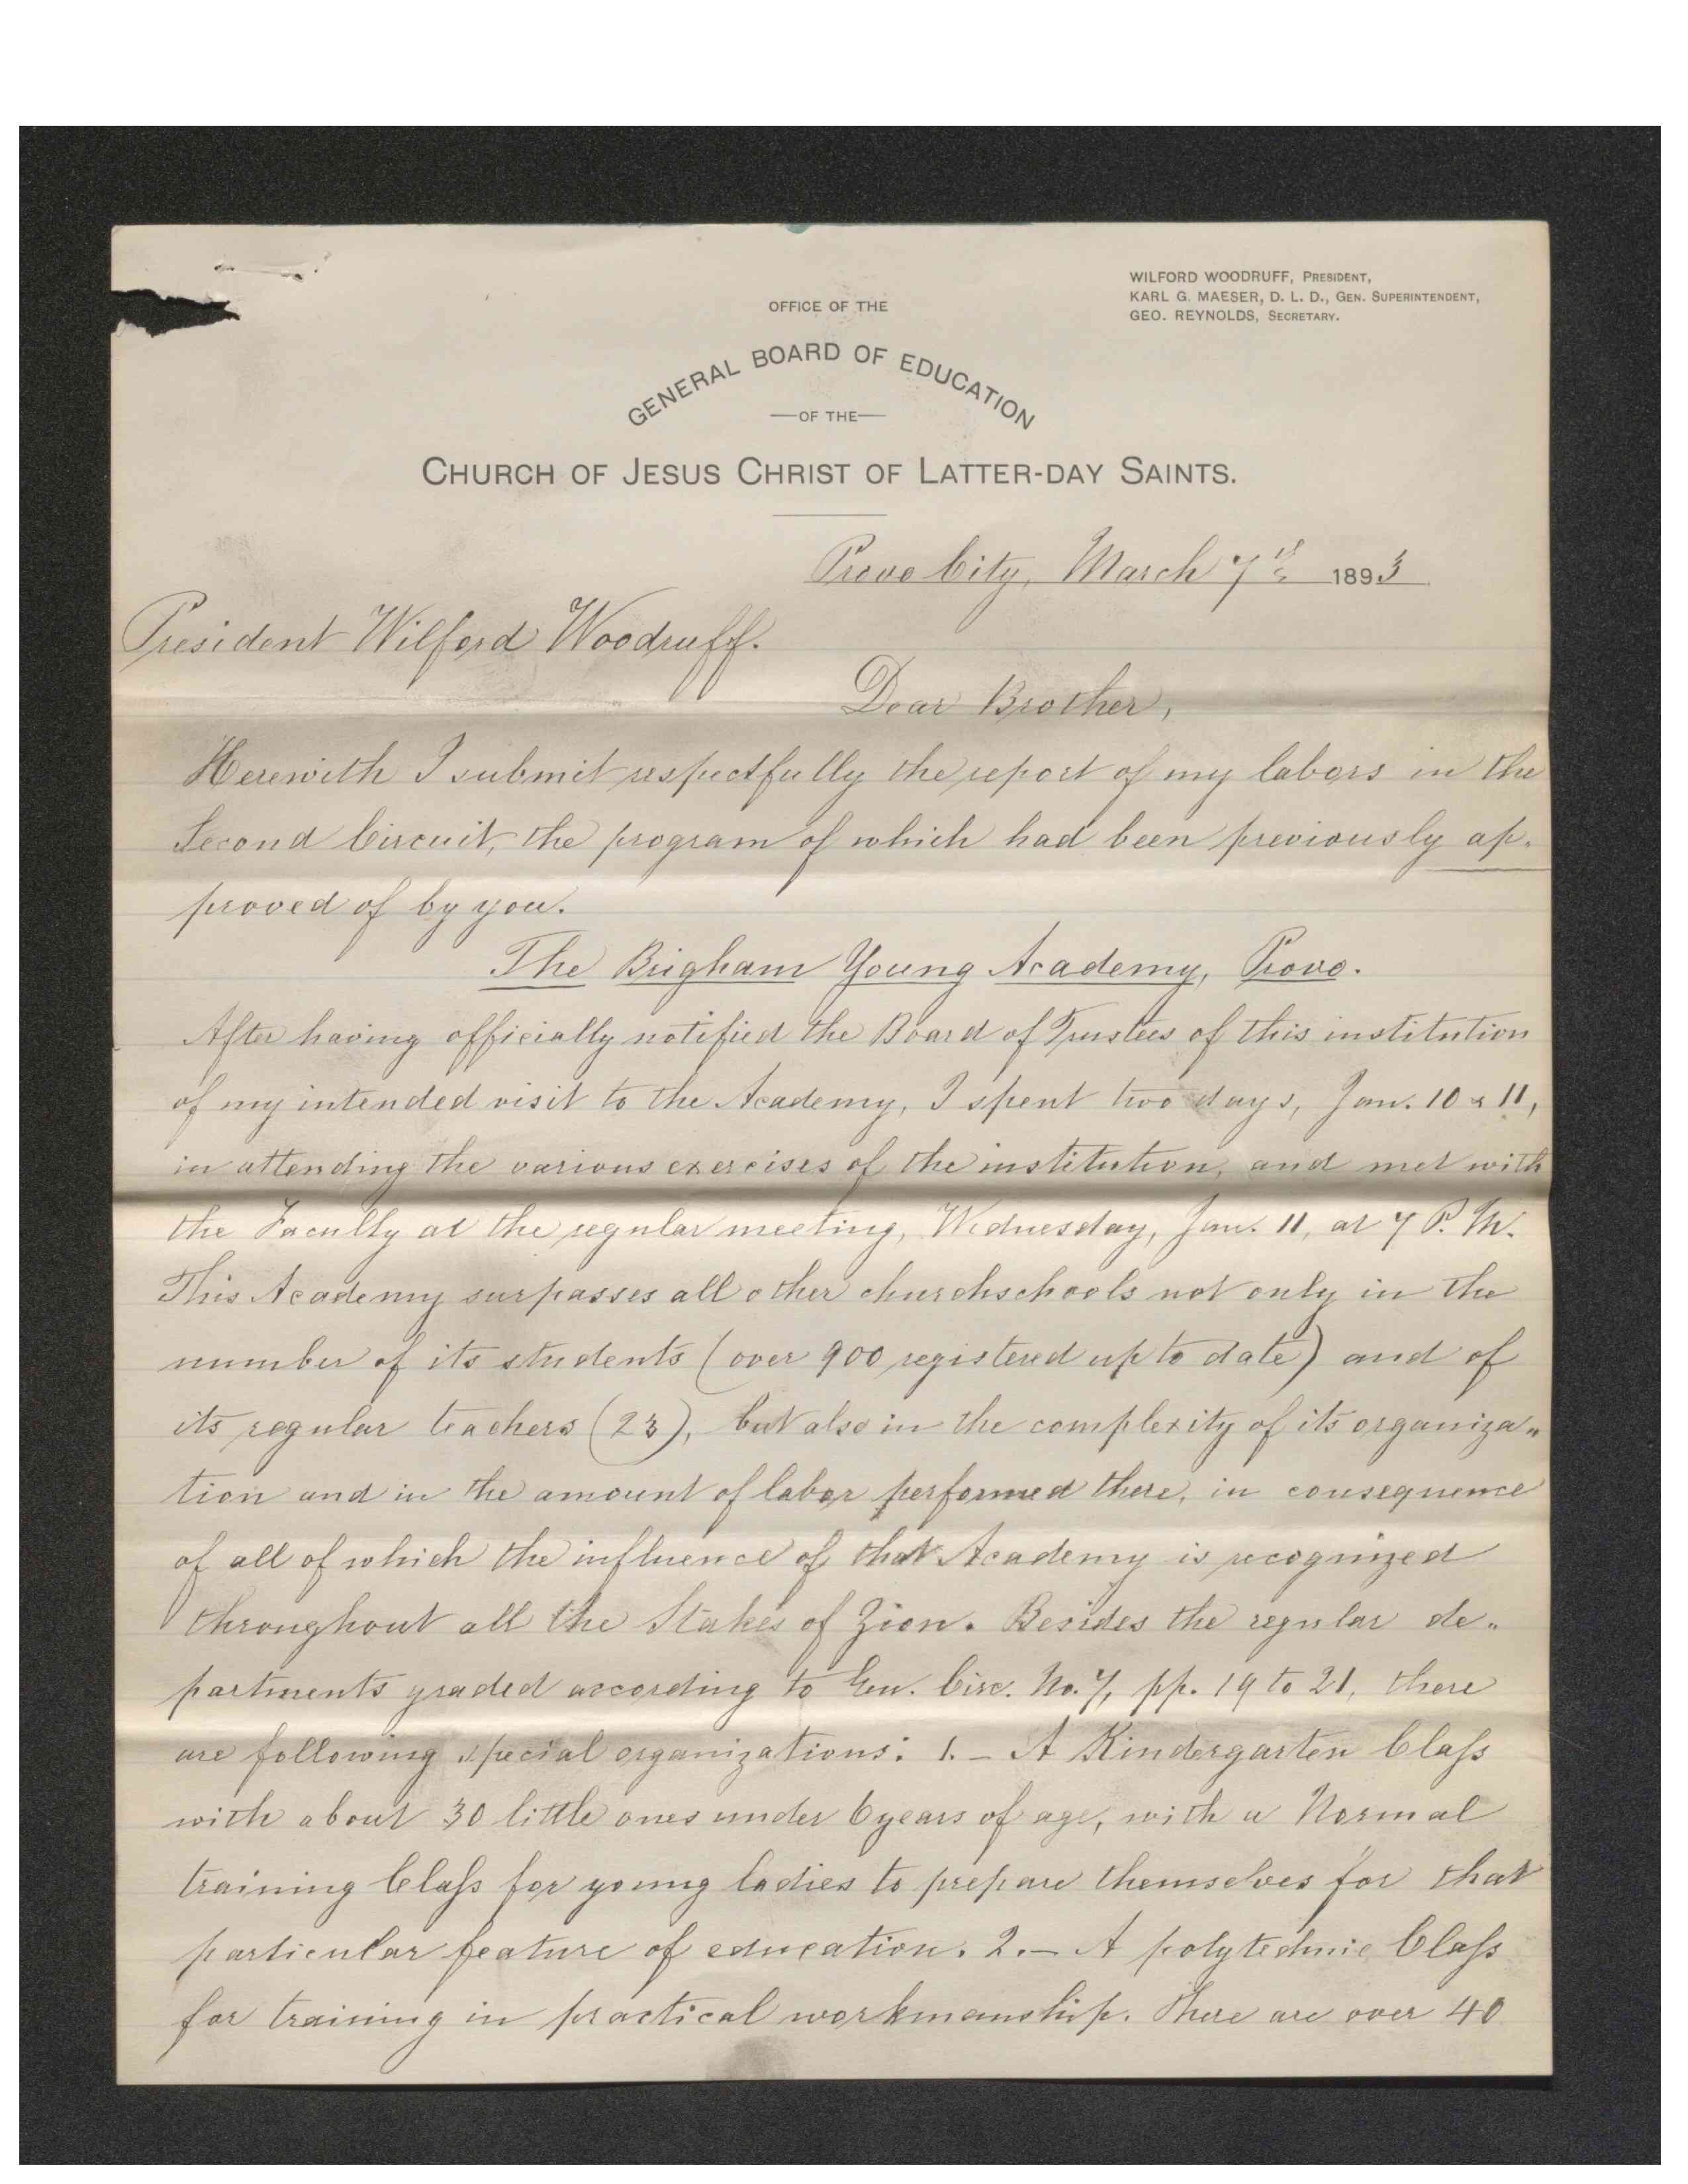 WILFORD WOODRUFF, PRESIDENT,
KARL G. MAESER, D. L. D., GEN. SUPERINTENDENT,
GEO. REYNOLDS, SECRETARY.
OFFICE OF THE
GENERAL BOARD OF EDUCATION
—OF THE—
CHURCH OF JESUS CHRIST OF LATTER-DAY SAINTS.
Provo City, March 7th 1893
President Wilford Woodruff.
Dear Brother,
Herewith I submit respectfully the report of my labors in the
Second Circuit, the program of which had been previously ap-
proved of by you.
The Brigham Young Academy, Provo.
After having officially notified the Board of Trustees of this institution
of my intended visit to the Academy, I spent two days, Jan. 10 & 11,
in attending the various exercises of the institution, and met with
the Faculty at the regular meeting, Wednesday, Jan. 11, at 7 P. M.
This Academy surpasses all other churchschools not only in the
number of its students (over 900 registered up to date) and of
its regular teachers (23), but also in the complexity of its organiza-
tion and in the amount of labor performed there, in consequence
of all of which the influence of that Academy is recognized
throughout all the Stakes of Zion. Besides the regular de-
partments graded according to Gen. Circ. No. 7, pp. 19 to 21, there
are following special organizations: 1. - A Kindergarten Class
with about 30 little ones under 6 years of age, with a Normal
training Class for young ladies to prepare themselves for that
particular feature of education. 2. - A polytechnic Class
for training in practical workmanship. There are over 40